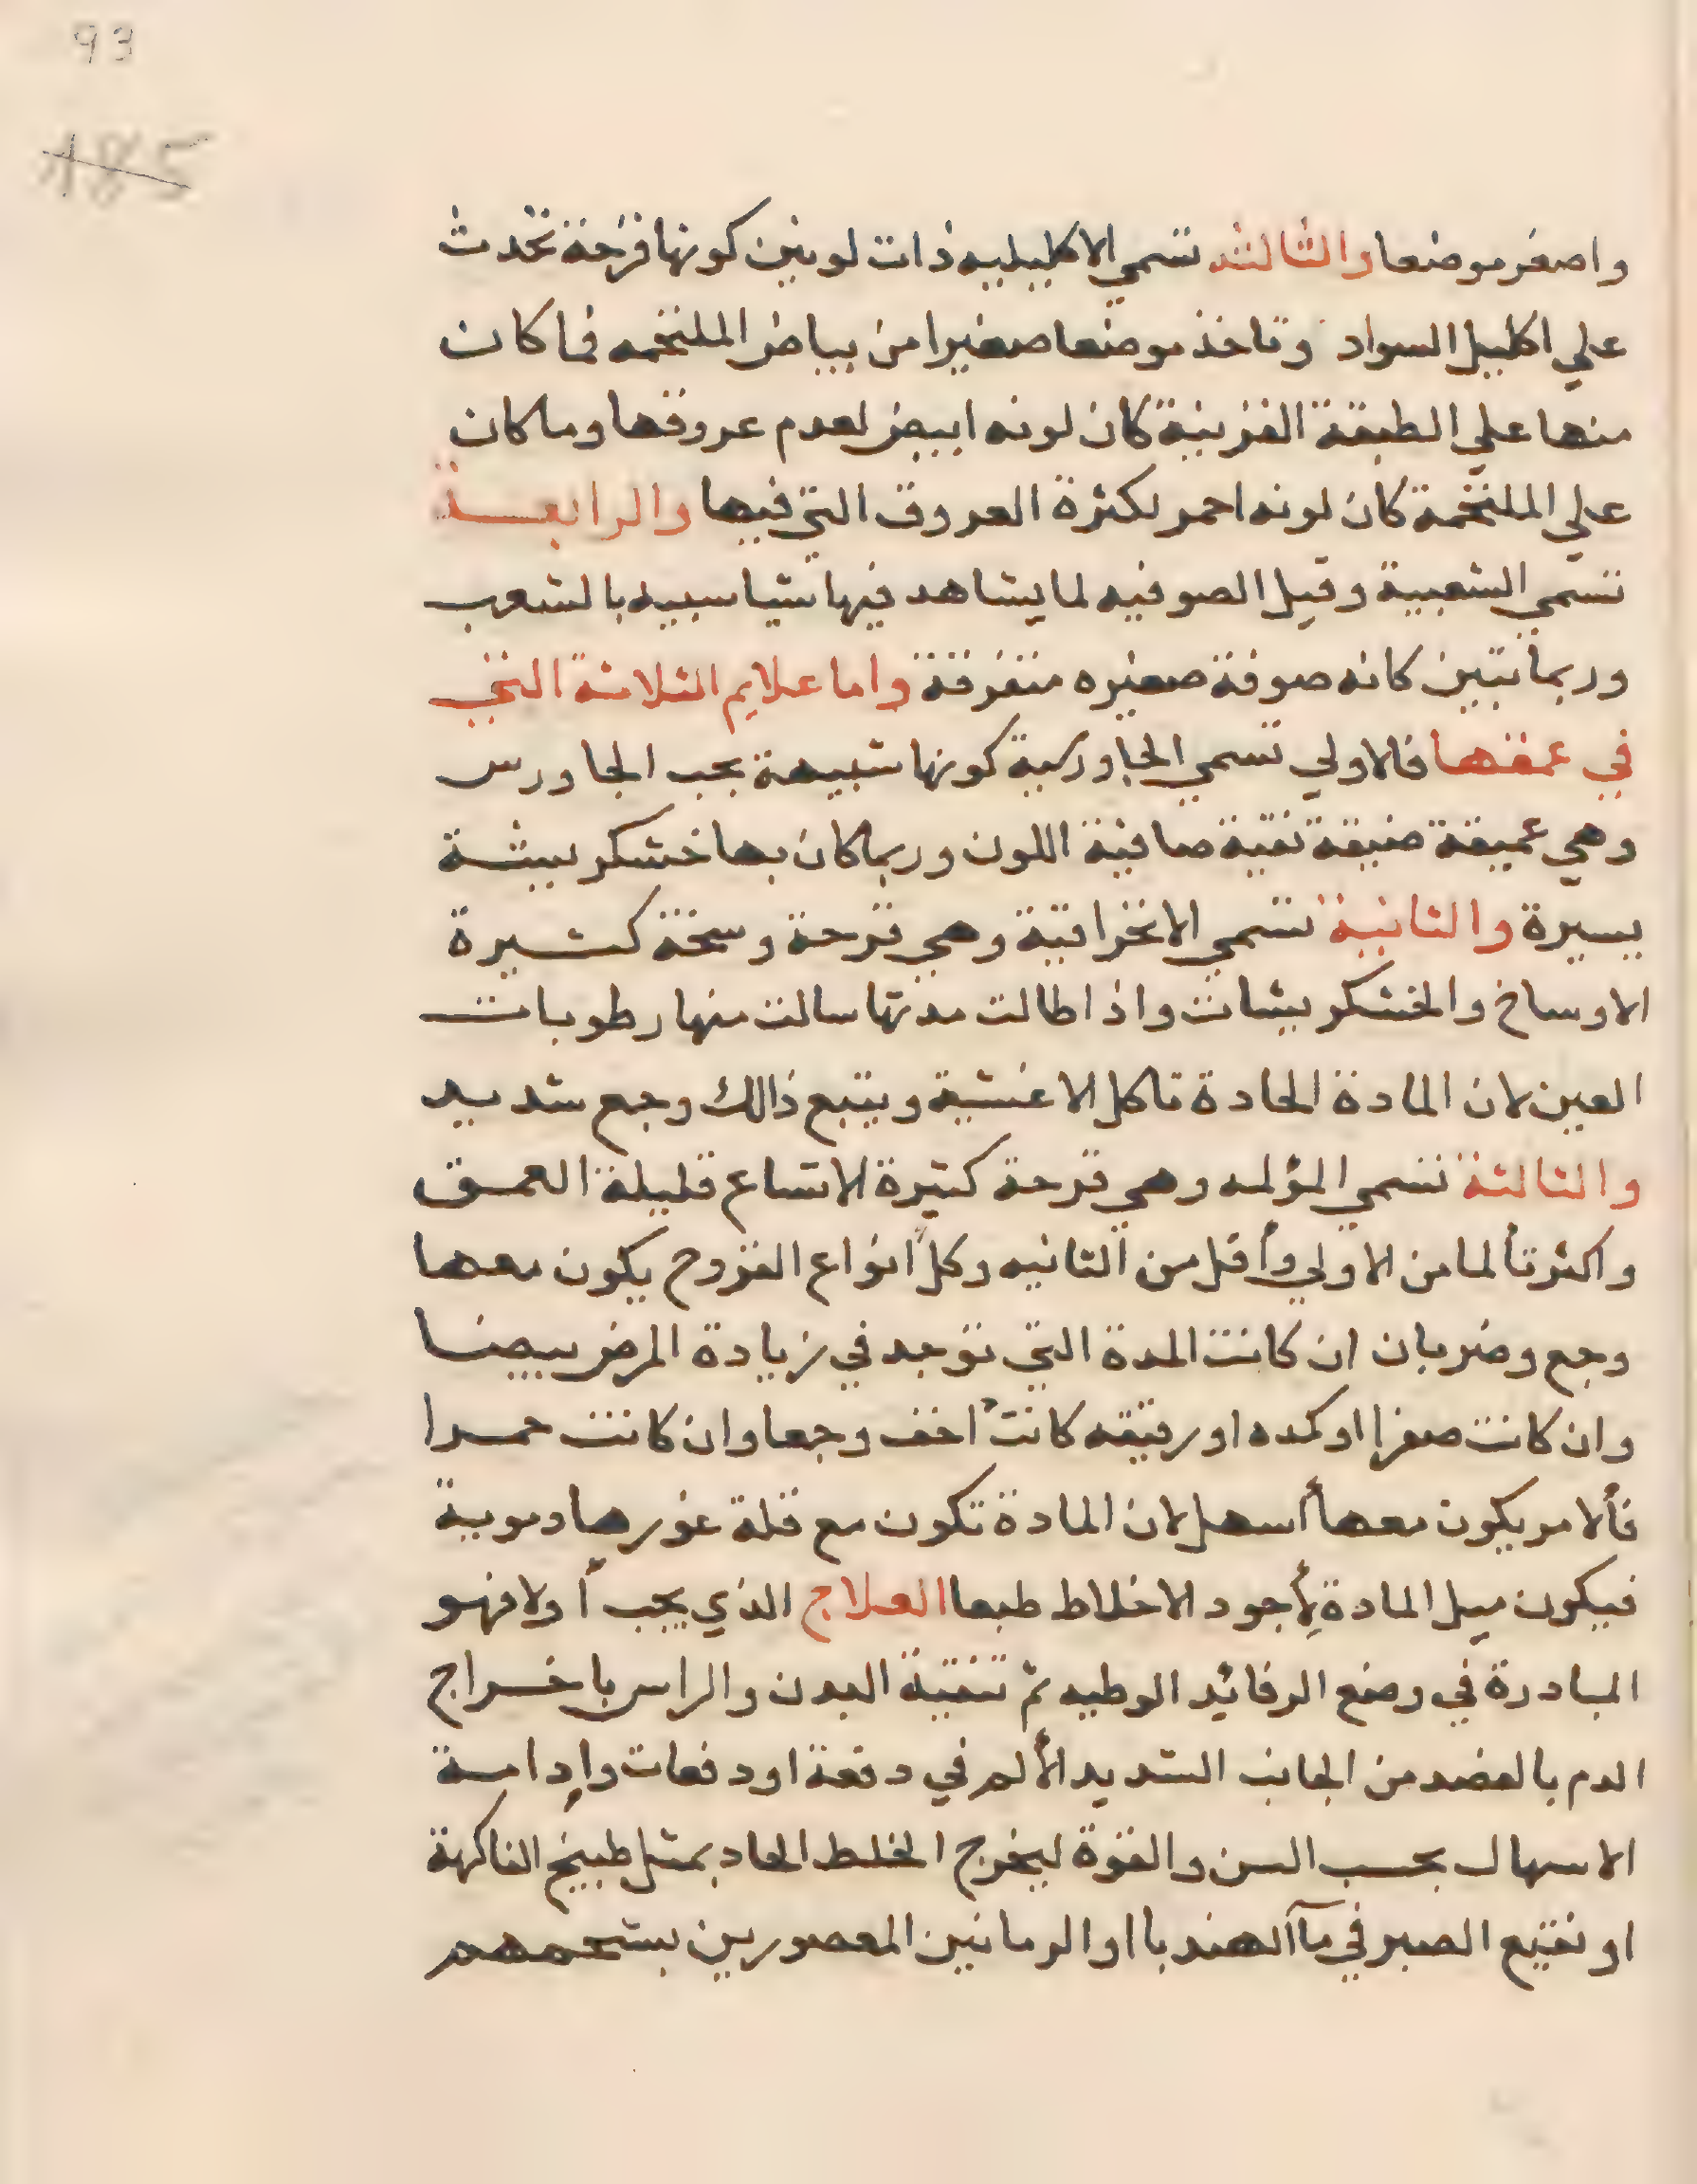 93
185
واصغر موضعا والثالثه تسمي الاكليليه ذات لونين كونها قرحة تحدث
علي اكليل السواد وتاخذ موضعا صغيرا من بياض الملتحمه فما كان
منها علي الطبقة القرنية كان لونه ابيض لعدم عروقها وما كان
علي الملتحمة كان لونه احمر لكثرة العروق التي فيها والرابعة
تسمي الشعبية وقيل الصوفيه لما يشاهد فيها شيا سبيه بالشعب
وربما تبين كانه صوفة صغيره متفرقة واما علايم الثلاثة التي
في عمقها فالاولي تسمي الجاورسية كونها شبيهة بحب الجاورس
وهي عميقة ضيقة نقية صافية اللون وربما كان بها خشكريشة
يسيرة والثانية تسمي الانخراقية وهي قرحة وسخة كثيرة
الاوساخ والخشكريشات واذا طالت مدتها سالت منها رطوبات
العين لان المادة الحادة تاكل الاغشية ويتبع ذالك وجع شديد
والثالثة تسمي المؤلمه وهي قرحة كثيرة الاتساع قليلة العمق
واكثر تألما من الاولي وأقل من الثانيه وكل انواع القروح يكون معها
وجع وضربان ان كانت المدة التي توجد في زيادة المرض بيضا
وان كانت صفرا او كمده او رقيقه كانت اخف وجعا وان كانت حمرا
فألامر يكون معها أسهل لان المادة تكون مع قلة غورها دموية
فيكون ميل المادة لأجود الاخلاط طبعا العلاج الذي يجب أولا فهو
المبادرة في وضع الرفائد الوطيه ثم تنقية البدن والراس باخراج
الدم بالفصد من الجانب الشديد الألم في دفعة او دفعات وإدامة
الاسهال بحسب السن والقوة ليخرج الخلط الحاد بمثل طبيخ الفاكهة
او نقيع الصبر في مآ الهندبا او الرمانين المعصورين بشحمهم